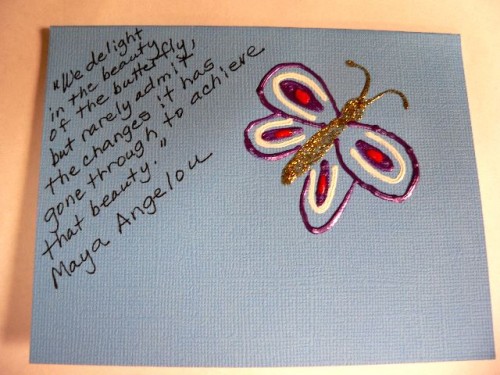 "We delight
in the beauty
of the butterfly,
but rarely admit
the changes it has
gone through to achieve
that beauty."
Maya Angelou